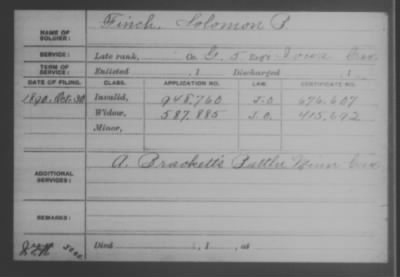 NAME OF SOLDIER: Finch, Solomon P.
SERVICE: Late rank, Co. G, 5 Reg't Iowa Cav.
TERM OF SERVICE: Enlisted , 1 Discharged , 1
DATE OF FILING. CLASS. APPLICATION NO. LAW. CERTIFICATE NO.
1890, Oct. 30 Invalid, 948,760 J.O. 676,607
Widow, 587,885 J.O. 415,692
Minor,
ADDITIONAL SERVICES: A. Brackett's Battln Minn Cav.
REMARKS:
Died , 1 , at